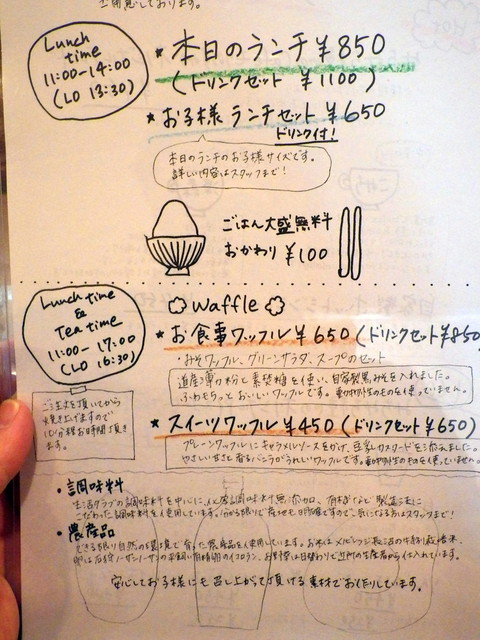 ご用意しております。
Lunch
time
11:00-14:00
(LO 13:30)
* 本日のランチ ¥850
(ドリンクセット ¥1100)
* お子様ランチセット ¥650
ドリンク付!
本日のランチのお子様サイズです。
詳しい内容はスタッフまで!
ごはん大盛無料
おかわり ¥100
Lunch time
&
Tea time
11:00-17:00
(LO 16:30)
Waffle
* お食事ワッフル ¥650 (ドリンクセット ¥850
・みそワッフル、グリーンサラダ、スープのセット
道産の粉と素焚糖を使い、自家製黒みそを入れました。
ふわもちっとおいしいワッフルです。動物性のものを使っていません。
ご注文を頂いてから
焼き上げますので
10分程お時間頂き
ます。
* スイーツワッフル ¥450 (ドリンクセット ¥650)
プレーンワッフルにキャラメルソースをかけ、豆乳カスタードを添えました。
やさしい甘さと香るバニラがうれしいワッフルです。動物性のものを使っていません。
・調味料
生活クラブの調味料を中心に、化学調味料無添加、有機など製造法に
こだわった調味料を使用しています。スタッフまで!
・農産品
できる限り自然の農産品を使用しています。お米は
お野菜は日替わりで近郊の生産者から仕入れています。
安心してお子様にも召し上がって頂ける素材でお作りしています。